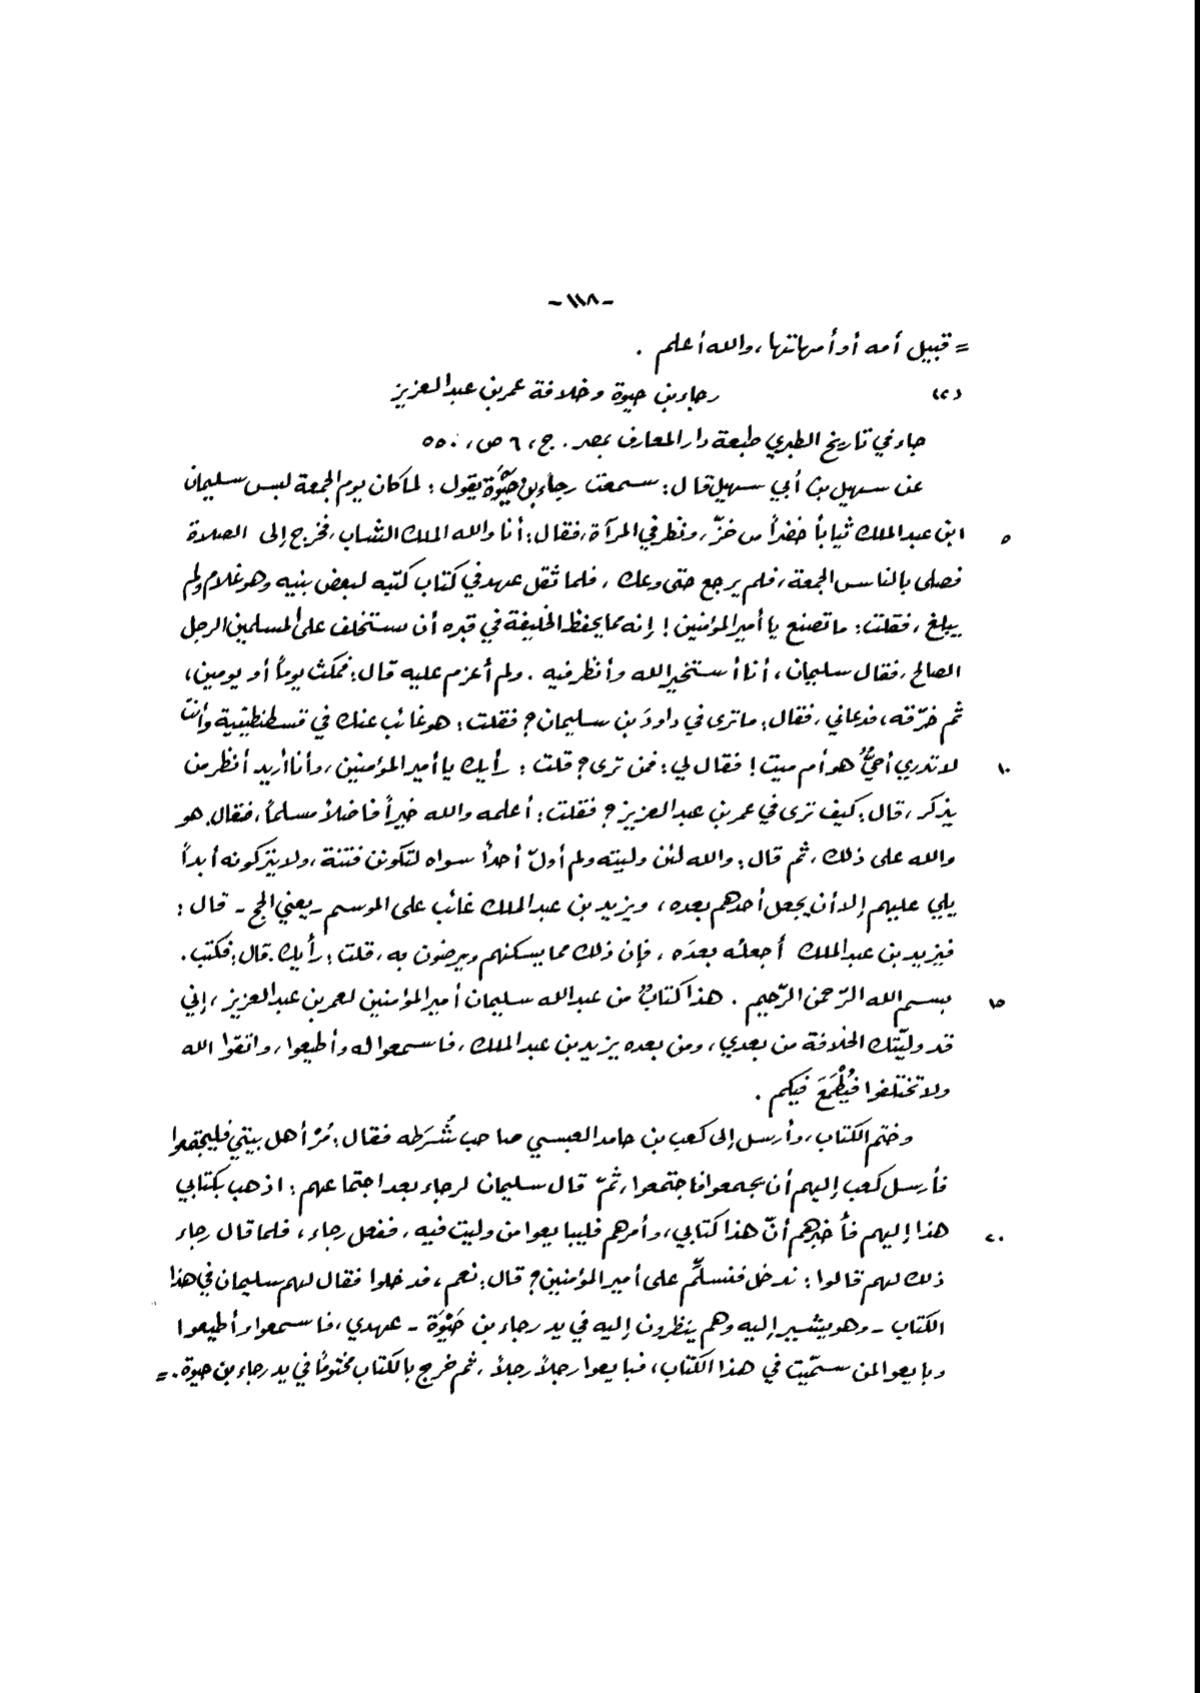 -١١٨-
= قبيل أمه أو أمهاتها، والله أعلم .
(٢) رجاء بن حيوة وخلافة عمر بن عبد العزيز
جاء في تاريخ الطبري طبعة دار المعارف بمصر . ج، ٦ ص، ٥٥٠
عن سهيل بن أبي سهيل قال: سمعت رجاء بن حَيْوَة يقول: لما كان يوم الجمعة لبس سليمان
٥ ابن عبد الملك ثياباً خضراً من خزّ، ونظر في المرآة، فقال: أنا والله الملك الشاب، فخرج إلى الصلاة
فصلى بالناس الجمعة، فلم يرجع حتى وعك، فلما ثقل عهد في كتاب كتبه لبعض بنيه وهو غلام ولم
يبلغ، فقلت: ما تصنع يا أمير المؤمنين! إنه مما يحفظ الخليفة في قبره أن يستخلف على المسلمين الرجل
الصالح، فقال سليمان، أنا أستخير الله وأنظر فيه . ولم أعزم عليه قال: فمكث يوماً أو يومين،
ثم خرّقه، فدعاني، فقال: ما ترى في داودَ بن سليمان؟ فقلت: هو غائب عنك في قسطنطينية وأنت
١٠ لا تدري أحيٌّ هو أم ميت! فقال لي: فمن ترى؟ قلت: رأيك يا أمير المؤمنين، وأنا أريد أنظر من
يذكر، قال: كيف ترى في عمر بن عبد العزيز؟ فقلت: أعلمه والله خيراً فاضلاً مسلماً، فقال. هو
والله على ذلك، ثم قال: والله لئن وليته ولم أولّ أحداً سواه لتكونن فتنة، ولا يتركونه أبداً
يلي عليهم إلا أن يجعل أحدهم بعده، ويزيد بن عبد الملك غائب على الموسم - يعني الحج - قال:
فيزيد بن عبد الملك أجعله بعدَه، فإن ذلك مما يسكنهم ويرضون به، قلت: رأيك. قال: فكتب .
١٥ بسم الله الرّحمن الرّحيم . هذا كتابٌ من عبد الله سليمان أمير المؤمنين لعمر بن عبد العزيز، إني
قد وليّتك الخلافة من بعدي، ومن بعده يزيد بن عبد الملك، فاسمعوا له وأطيعوا، واتقوا الله
ولا تختلفوا فيُطْمَعَ فيكم .
وختم الكتاب، وأرسل إلى كعب بن حامد العبسي صاحب شُرَطه فقال: مُرْ أهل بيتي فليجتمعوا
فأرسل كعب إليهم أن يجمعوا فاجتمعوا، ثمّ قال سليمان لرجاء بعد اجتماعهم: اذهب بكتابي
٢٠ هذا إليهم فأخبرهم أنّ هذا كتابي، وأمرهم فليبايعوا من وليت فيه، ففعل رجاء، فلما قال رجاء
ذلك لهم قالوا: ندخل فنسلّم على أمير المؤمنين؟ قال: نعم، فدخلوا فقال لهم سليمان في هذا
الكتاب - وهو يشير إليه وهم ينظرون إليه في يد رجاء بن حَيْوَة - عهدي، فاسمعوا وأطيعوا
وبايعوا لمن سمّيت في هذا الكتاب، فبايعوا رجلاً رجلاً، ثم خرج بالكتاب مختوماً في يد رجاء بن حيوة. =